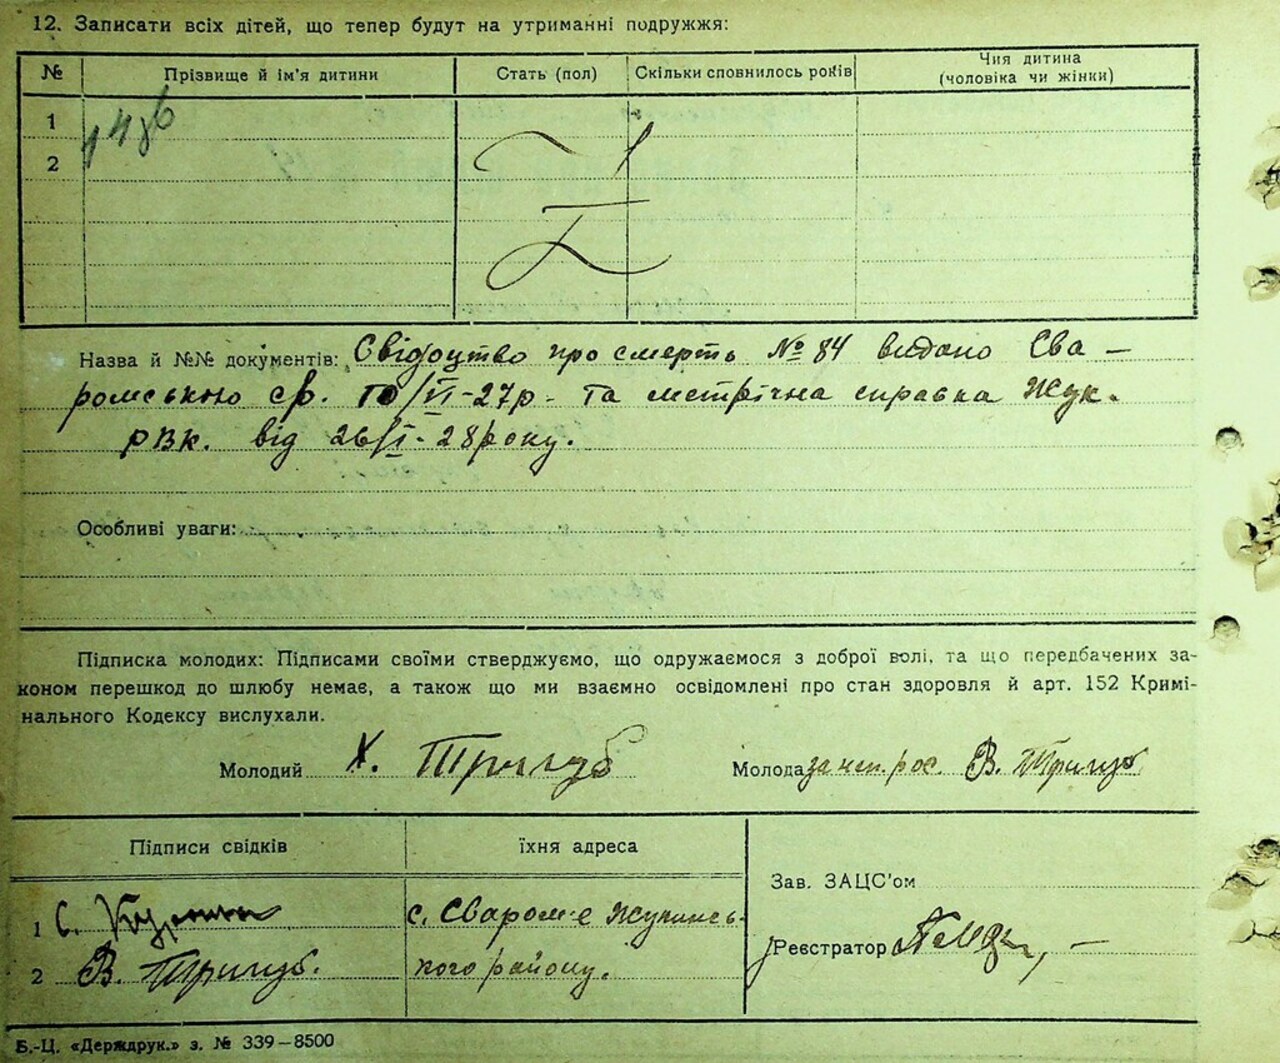 12. Записати всіх дітей, що тепер будут на утриманні подружжя:
№ Прізвище й ім'я дитини Стать (пол) Скільки сповнилось років Чия дитина (чоловіка чи жінки)
1
2
Назва й №№ документів: Свідоцтво про смерть № 84 видано Сва-
ромською с/р. 10/VI-27р. та метрічна справка Жук.
РВК. від 26/I-28 року.
Особливі уваги:
Підписка молодих: Підписами своїми стверджуємо, що одружаємося з доброї волі, та що передбачених за-
коном перешкод до шлюбу немає, а також що ми взаємно освідомлені про стан здоровля й арт. 152 Кримі-
нального Кодексу вислухали.
Молодий Х. Тригуб Молода за неп. рос. В. Тригуб
Підписи свідків їхня адреса
Зав. ЗАЦС'ом
1 С. с. Сваром'є Жукинсь-
Реєстратор
2 В. Тригуб. кого району.
Б.-Ц. «Держдрук.» з. № 339—8500